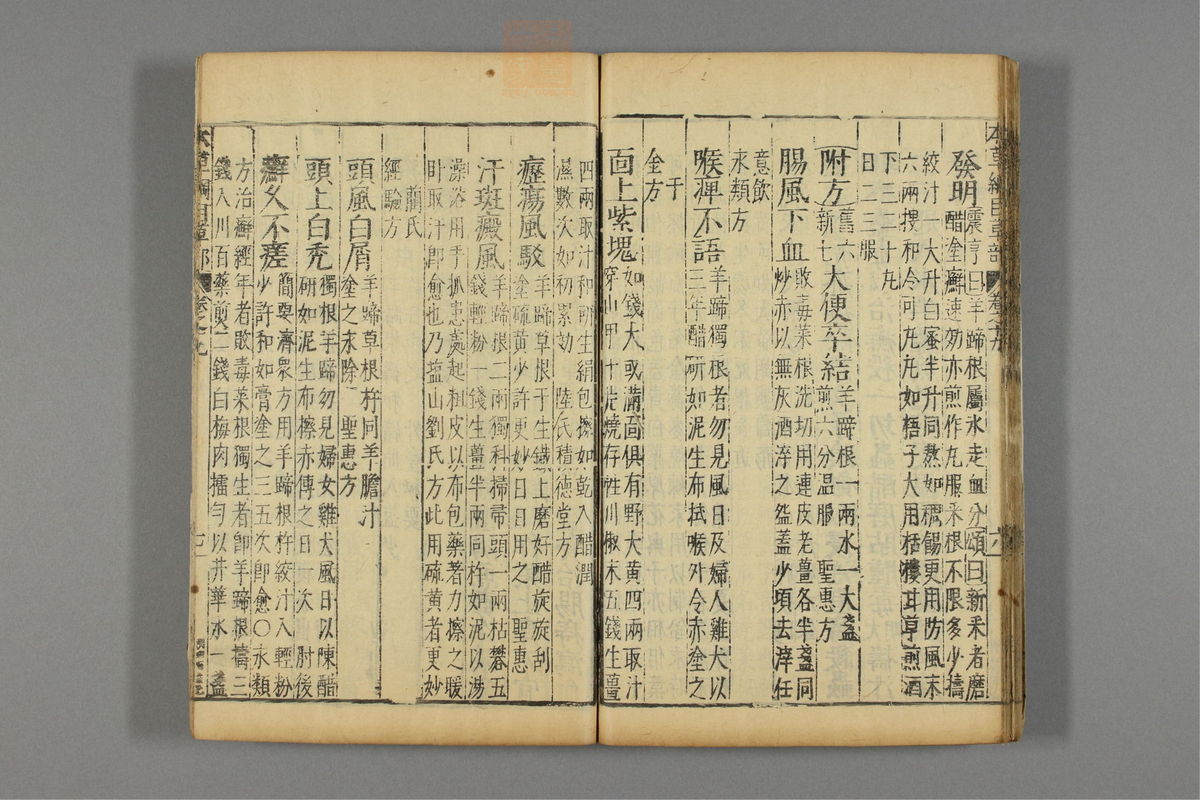 發明震亨曰羊蹄根屬水走血分頌曰新采者磨
醋塗癬速効亦煎作丸服采根不限多少擣
絞汁一大升白蜜半升同熬如稠餳更用防風末
六兩搜和令可丸丸如梧子大用栝樓甘草煎酒
下三二十丸
日二三服
附方舊六新七大便卒結羊蹄根一兩水一大盞
煎六分温服 聖惠方
腸風下血敗毒菜根洗切用連皮老薑各半盞同
炒赤以無灰酒淬之盌蓋少頃去滓任
意飲
永類方
喉痺不語羊蹄獨根者勿見風日及婦人雞犬以
三年醋研如泥生布拭喉外令赤塗之
千
金方
面上紫塊如錢大或滿面俱有野大黄四兩取汁
穿山甲十片燒存性川椒末五錢生薑
四兩取汁和研生絹包擦如乾入醋潤
濕數次如初累効 陸氏積德堂方
癧瘍風駁羊蹄草根于生鐵上磨好醋旋旋刮
塗硫黄少許更妙日日用之 聖惠
汗斑癜風羊蹄根二兩獨科掃帚頭一兩枯礬五
錢輕粉一錢生薑半兩同杵如泥以湯
澡浴用手抓患處起粗皮以布包藥著力擦之暖
卧取汗即愈也乃塩山劉氏方此用硫黄者更妙
藺氏
經驗方
頭風白屑羊蹄草根杵同羊膽汁
塗之永除 聖惠方
頭上白禿獨根羊蹄勿見婦女雞犬風日以陳醋
研如泥生布擦赤傅之日一次 肘後
癬久不瘥簡要濟衆方用羊蹄根杵絞汁入輕粉
少許和如膏塗之三五次即愈○永類
方治癬經年者敗毒菜根獨生者即羊蹄根擣三
錢入川百藥煎二錢白梅肉擂勻以井華水一盞